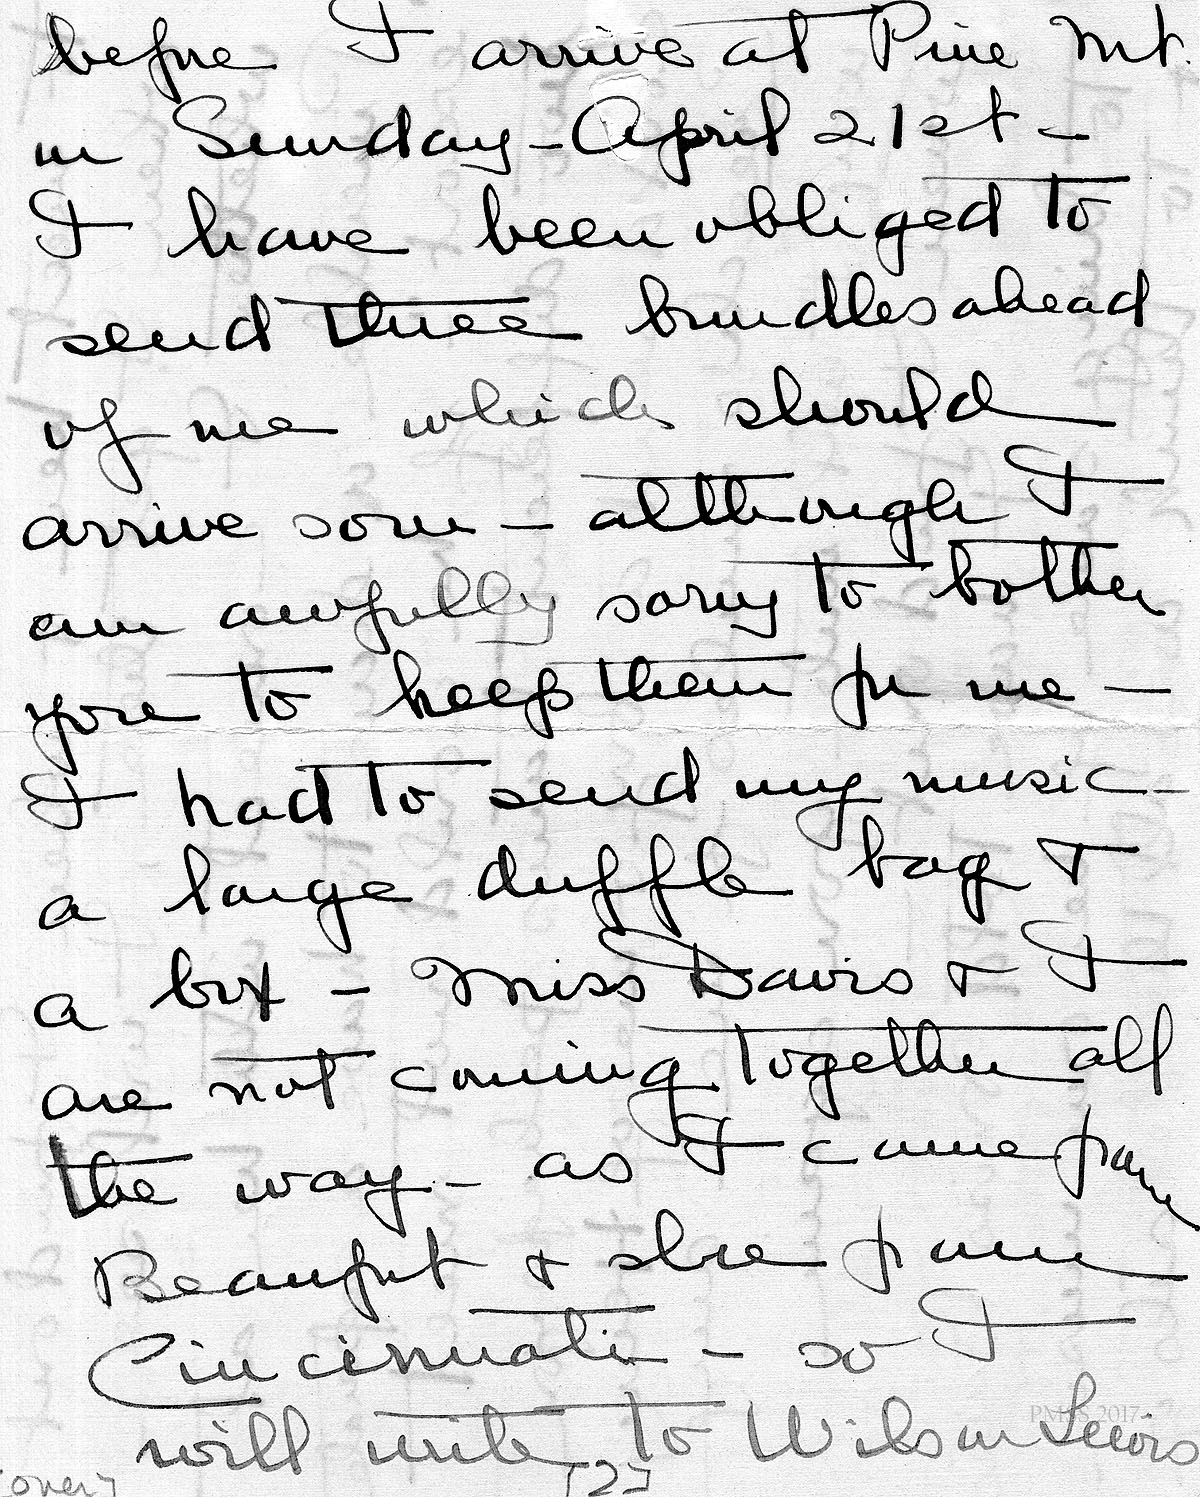 before I arrive at Pine Mt.
on Sunday - April 21st -
I have been obliged to
send three bundles ahead
of me which should
arrive soon - although I
am awfully sorry to bother
you to keep them for me -
I had to send my music -
a large duffle bag &
a box - Miss Davis & I
are not coming together all
the way - as I come from
Beaufort & she from
Cincinnati - so I
will write to Wilson Lewis
[over] [2]
PMSS 2017